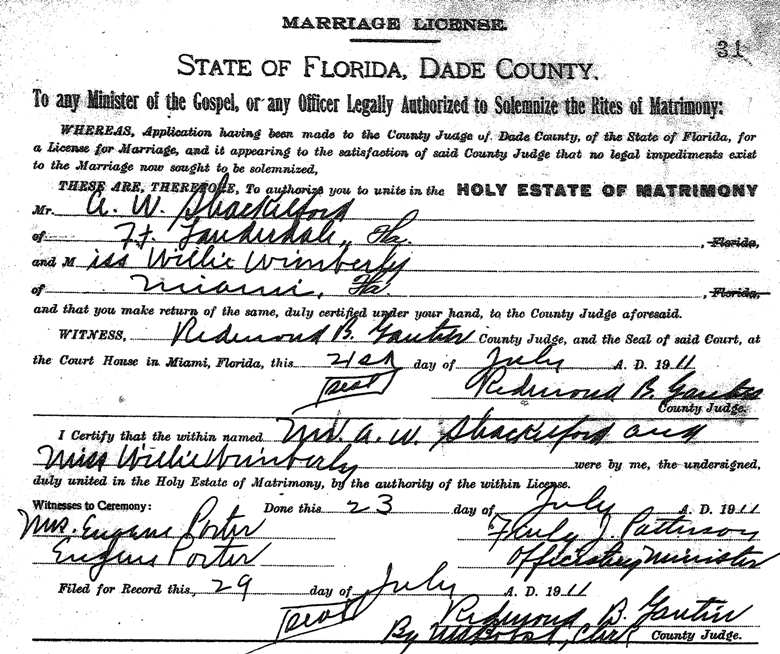 MARRIAGE LICENSE.
31
STATE OF FLORIDA, DADE COUNTY.
To any Minister of the Gospel, or any Officer Legally Authorized to Solemnize the Rites of Matrimony:
WHEREAS, Application having been made to the County Judge of Dade County, of the State of Florida, for
a License for Marriage, and it appearing to the satisfaction of said County Judge that no legal impediments exist
to the Marriage now sought to be solemnized,
THESE ARE, THEREFORE, To authorize you to unite in the HOLY ESTATE OF MATRIMONY
Mr. A. W. Shackelford
of Ft. Lauderdale, Fla. , Florida,
and M iss Willie Wimberly
of Miami, Fla. , Florida,
and that you make return of the same, duly certified under your hand, to the County Judge aforesaid.
WITNESS, Redmond B. Gautier County Judge, and the Seal of said Court, at
the Court House in Miami, Florida, this 21st day of July A. D. 1911
Seal Redmond B. Gautier
County Judge.
I Certify that the within named Mr. A. W. Shackelford and
Miss Willie Wimberly were by me, the undersigned,
duly united in the Holy Estate of Matrimony, by the authority of the within License.
Witnesses to Ceremony: Done this 23 day of July A. D. 1911
Mrs. Eugene Porter J. Patterson
Eugene Porter Officiating Minister
Filed for Record this 29 day of July A. D. 1911
Seal Redmond B. Gautier
By Clerk County Judge.